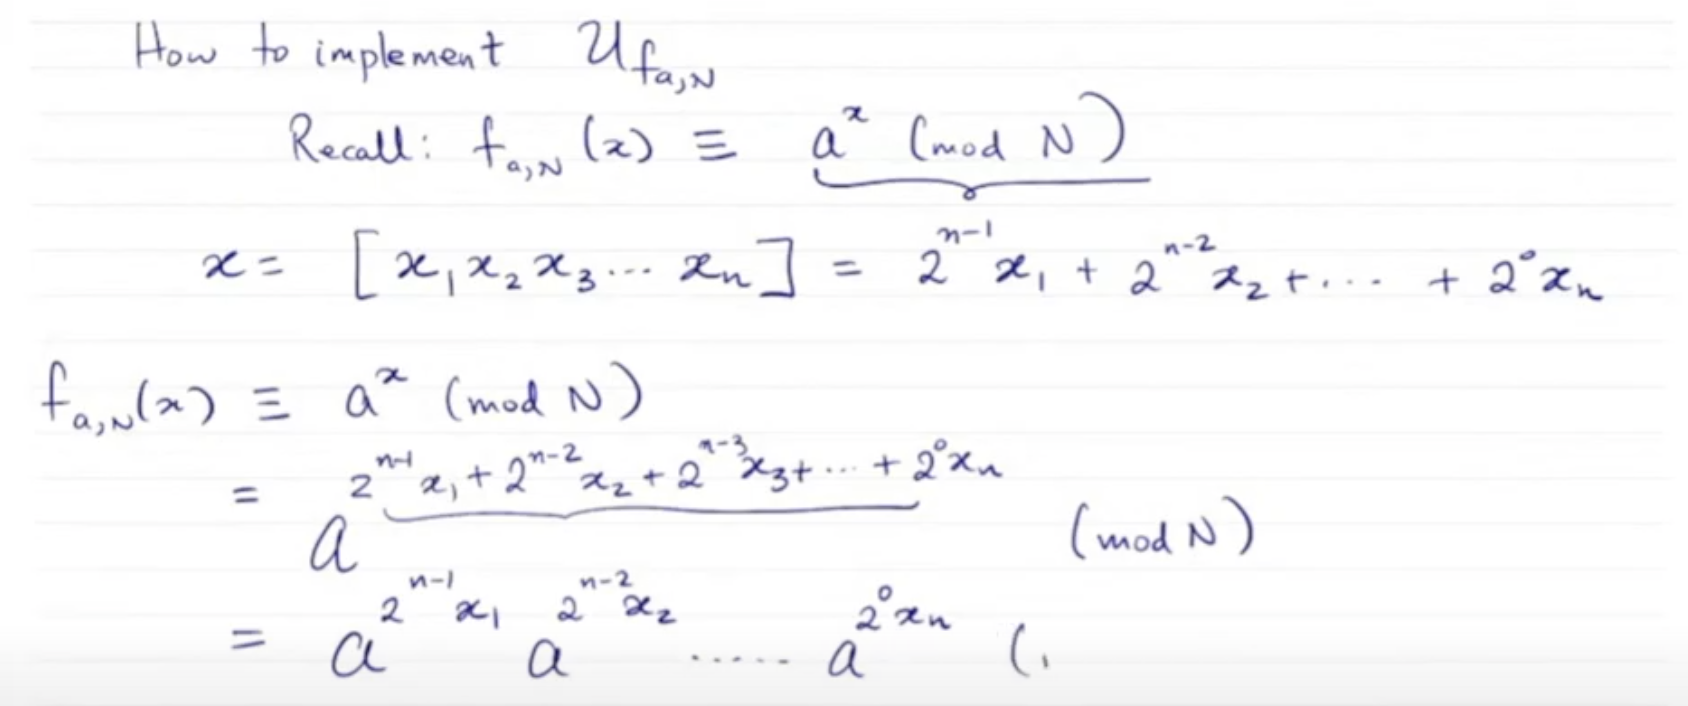 How to implement U_{f_{a,N}}
Recall: f_{a,N}(x) ≡ a^x (mod N)
x = [x₁x₂x₃... xₙ] = 2^{n-1}x₁ + 2^{n-2}x₂ + .... + 2⁰xₙ
f_{a,N}(x) ≡ a^x (mod N)
= a^{2^{n-1}x₁ + 2^{n-2}x₂ + 2^{n-3}x₃ + ... + 2⁰xₙ} (mod N)
= a^{2^{n-1}x₁} a^{2^{n-2}x₂} ..... a^{2⁰xₙ} (